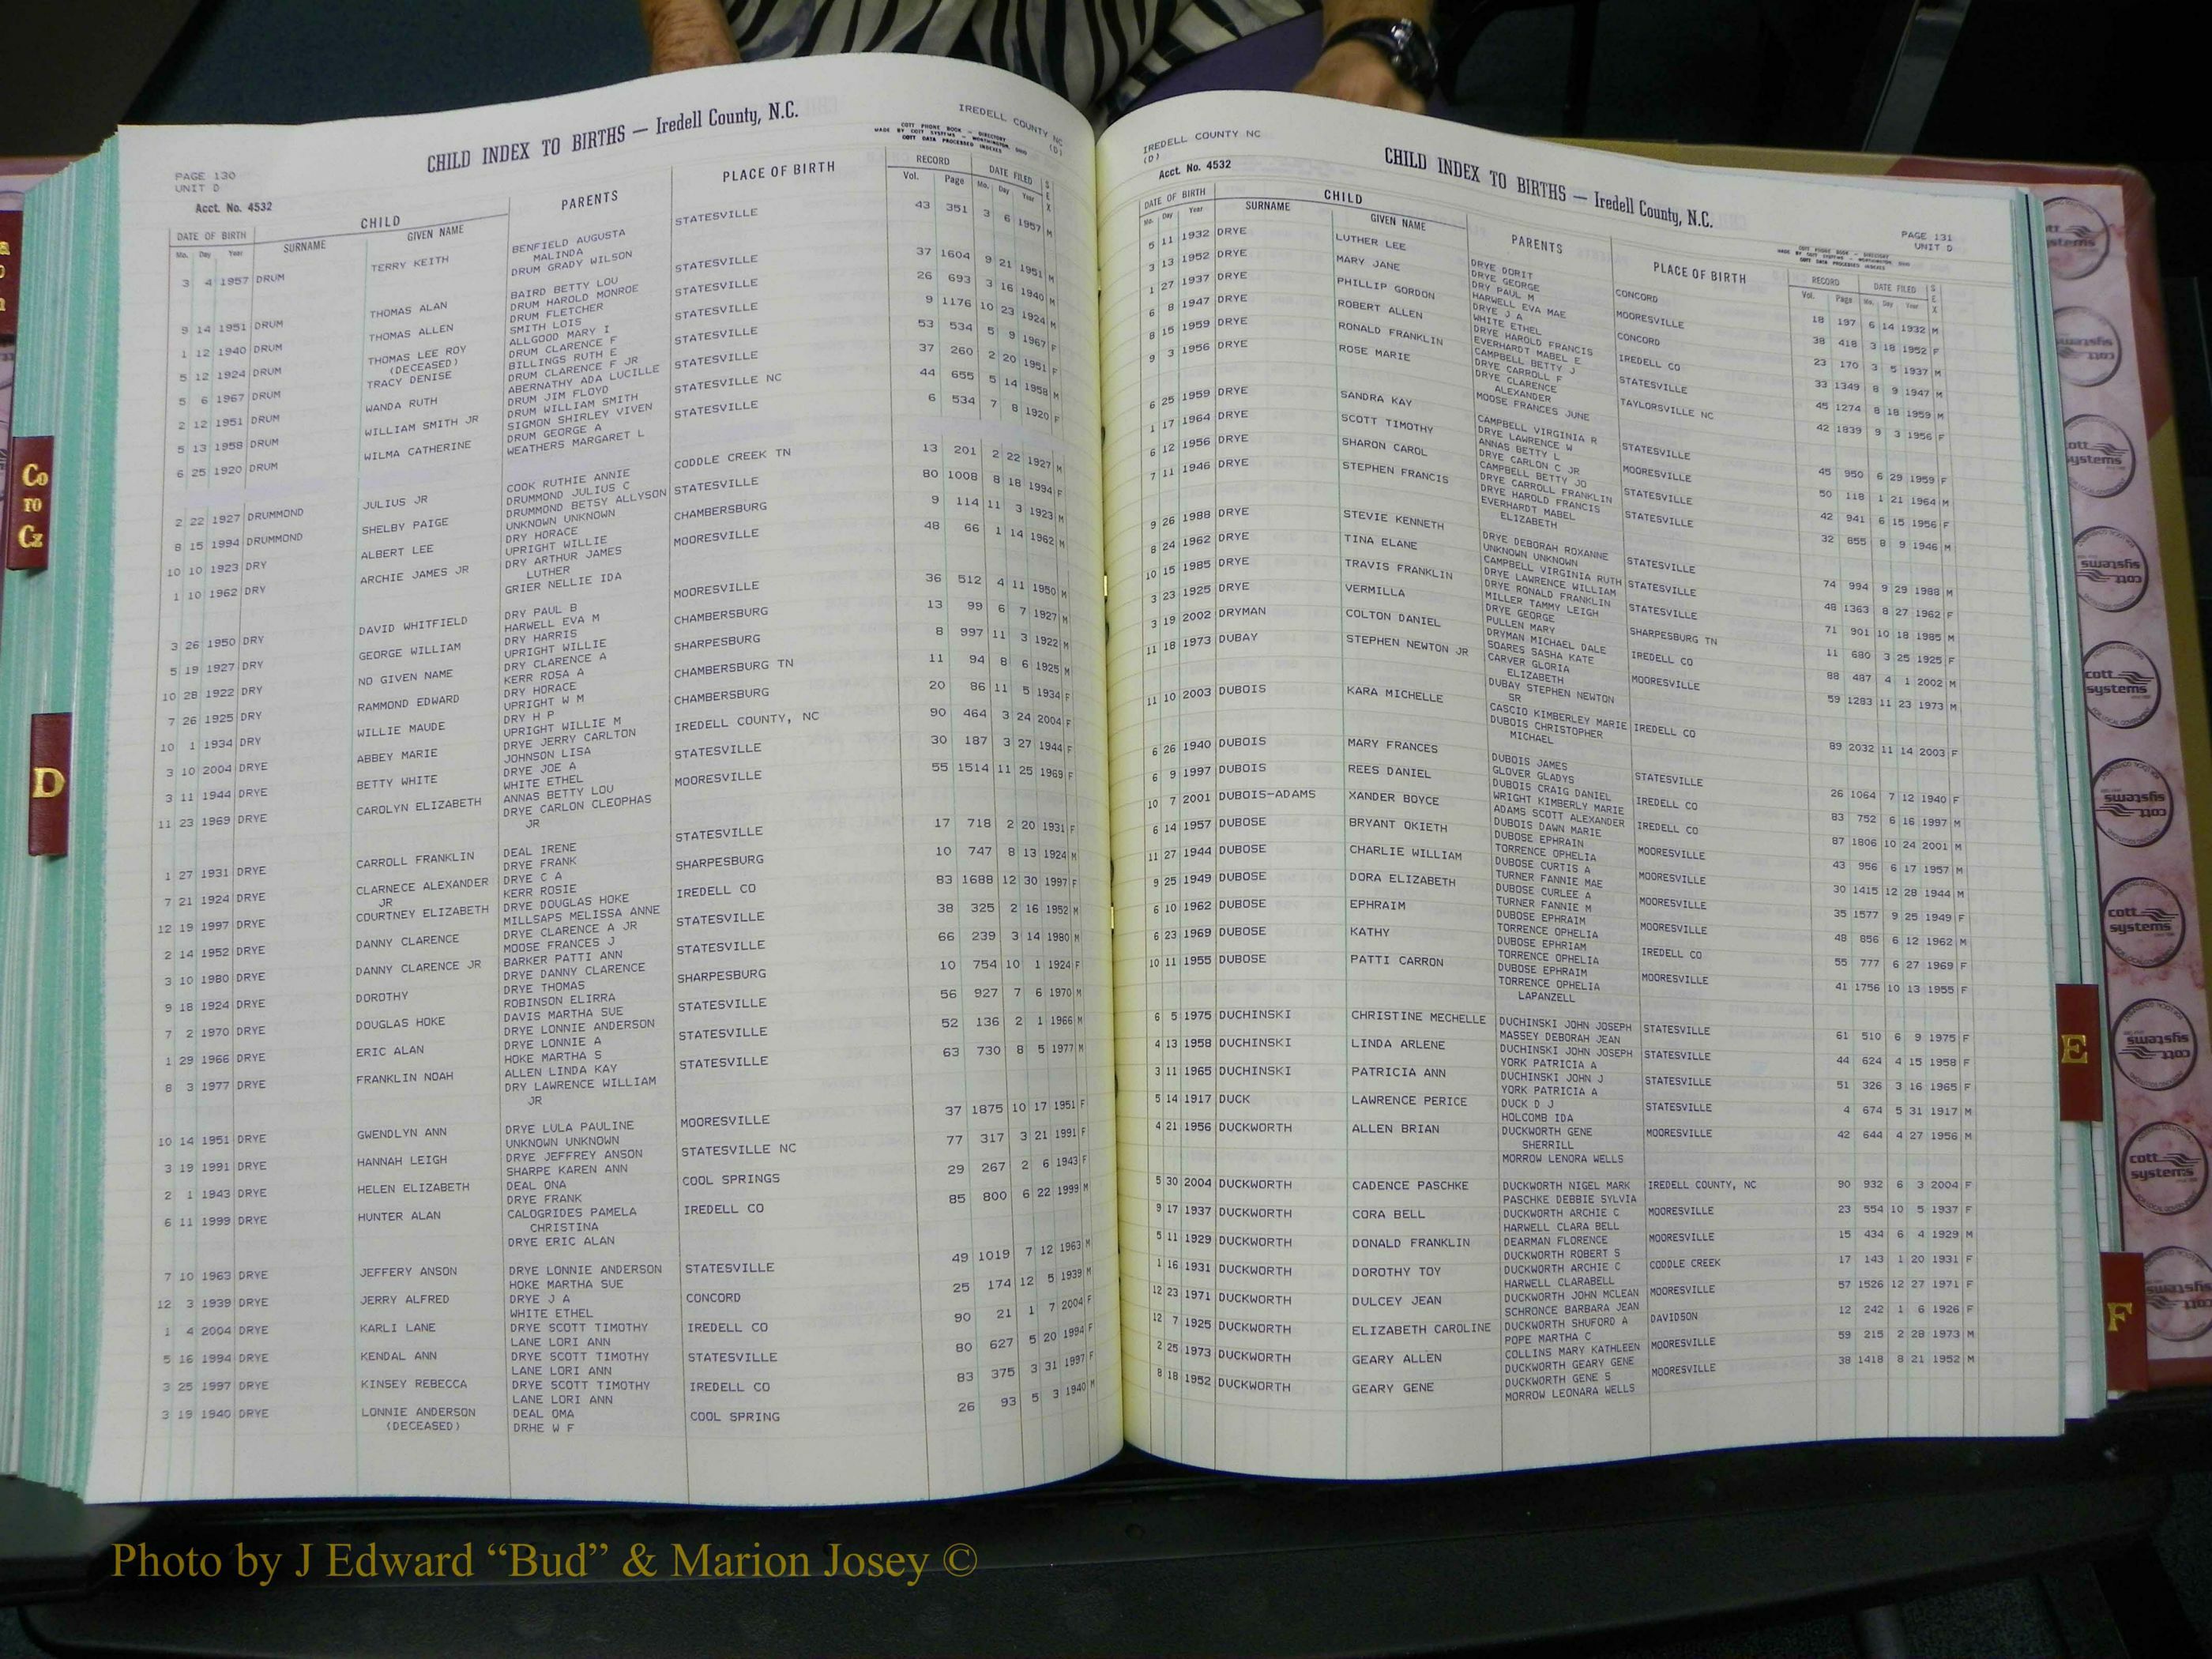 CHILD INDEX TO BIRTHS — Iredell County, N.C.
IREDELL COUNTY NC
(D)
COTT PHONE BOOK - DIRECTORY
MADE BY COTT SYSTEMS - WORTHINGTON, OHIO
COTT DATA PROCESSED INDEXES
PAGE 130
UNIT D
Acct. No. 4532
DATE OF BIRTH CHILD PARENTS PLACE OF BIRTH RECORD DATE FILED SEX
Mo. Day Year SURNAME GIVEN NAME Vol. Page Mo. Day Year
3 4 1957 DRUM TERRY KEITH BENFIELD AUGUSTA STATESVILLE 43 351 3 6 1957 M
MALINDA
DRUM GRADY WILSON
9 14 1951 DRUM THOMAS ALAN BAIRD BETTY LOU STATESVILLE 37 1604 9 21 1951 M
DRUM HAROLD MONROE
1 12 1940 DRUM THOMAS ALLEN DRUM FLETCHER STATESVILLE 26 693 3 16 1940 M
SMITH LOIS
5 12 1924 DRUM THOMAS LEE ROY ALLGOOD MARY I STATESVILLE 9 1176 10 23 1924 M
(DECEASED) DRUM CLARENCE F
5 6 1967 DRUM TRACY DENISE BILLINGS RUTH E STATESVILLE 53 534 5 9 1967 F
DRUM CLARENCE F JR
2 12 1951 DRUM WANDA RUTH ABERNATHY ADA LUCILLE STATESVILLE 37 260 2 20 1951 F
DRUM JIM FLOYD
5 13 1958 DRUM WILLIAM SMITH JR DRUM WILLIAM SMITH STATESVILLE NC 44 655 5 14 1958 M
SIGMON SHIRLEY VIVEN
6 25 1920 DRUM WILMA CATHERINE DRUM GEORGE A STATESVILLE 6 534 7 8 1920 F
WEATHERS MARGARET L
2 22 1927 DRUMMOND JULIUS JR COOK RUTHIE ANNIE CODDLE CREEK TN 13 201 2 22 1927 M
DRUMMOND JULIUS C
8 15 1994 DRUMMOND SHELBY PAIGE DRUMMOND BETSY ALLYSON STATESVILLE 80 1008 8 18 1994 F
UNKNOWN UNKNOWN
10 10 1923 DRY ALBERT LEE DRY HORACE CHAMBERSBURG 9 114 11 3 1923 M
UPRIGHT WILLIE
1 10 1962 DRY ARCHIE JAMES JR DRY ARTHUR JAMES MOORESVILLE 48 66 1 14 1962 M
LUTHER
GRIER NELLIE IDA
3 26 1950 DRY DAVID WHITFIELD DRY PAUL B MOORESVILLE 36 512 4 11 1950 M
HARWELL EVA M
5 19 1927 DRY GEORGE WILLIAM DRY HARRIS CHAMBERSBURG 13 99 6 7 1927 M
UPRIGHT WILLIE
10 28 1922 DRY NO GIVEN NAME DRY CLARENCE A SHARPESBURG 8 997 11 3 1922 M
KERR ROSA A
7 26 1925 DRY RAMMOND EDWARD DRY HORACE CHAMBERSBURG TN 11 94 8 6 1925 M
UPRIGHT W M
10 1 1934 DRY WILLIE MAUDE DRY H P CHAMBERSBURG 20 86 11 5 1934 F
UPRIGHT WILLIE M
3 10 2004 DRYE ABBEY MARIE DRYE JERRY CARLTON IREDELL COUNTY, NC 90 464 3 24 2004 F
JOHNSON LISA
3 11 1944 DRYE BETTY WHITE DRYE JOE A STATESVILLE 30 187 3 27 1944 F
WHITE ETHEL
11 23 1969 DRYE CAROLYN ELIZABETH ANNAS BETTY LOU MOORESVILLE 55 1514 11 25 1969 F
DRYE CARLON CLEOPHAS
JR
1 27 1931 DRYE CARROLL FRANKLIN DEAL IRENE STATESVILLE 17 718 2 20 1931 F
DRYE FRANK
7 21 1924 DRYE CLARNECE ALEXANDER DRYE C A SHARPESBURG 10 747 8 13 1924 M
JR KERR ROSIE
12 19 1997 DRYE COURTNEY ELIZABETH DRYE DOUGLAS HOKE IREDELL CO 83 1688 12 30 1997 F
MILLSAPS MELISSA ANNE
2 14 1952 DRYE DANNY CLARENCE DRYE CLARENCE A JR STATESVILLE 38 325 2 16 1952 M
MOOSE FRANCES J
3 10 1980 DRYE DANNY CLARENCE JR BARKER PATTI ANN STATESVILLE 66 239 3 14 1980 M
DRYE DANNY CLARENCE
9 18 1924 DRYE DOROTHY DRYE THOMAS SHARPESBURG 10 754 10 1 1924 F
ROBINSON ELIRRA
7 2 1970 DRYE DOUGLAS HOKE DAVIS MARTHA SUE STATESVILLE 56 927 7 6 1970 M
DRYE LONNIE ANDERSON
1 29 1966 DRYE ERIC ALAN DRYE LONNIE A STATESVILLE 52 136 2 1 1966 M
HOKE MARTHA S
8 3 1977 DRYE FRANKLIN NOAH ALLEN LINDA KAY STATESVILLE 63 730 8 5 1977 M
DRY LAWRENCE WILLIAM
JR
10 14 1951 DRYE GWENDLYN ANN DRYE LULA PAULINE MOORESVILLE 37 1875 10 17 1951 F
UNKNOWN UNKNOWN
3 19 1991 DRYE HANNAH LEIGH DRYE JEFFREY ANSON STATESVILLE NC 77 317 3 21 1991 F
SHARPE KAREN ANN
2 1 1943 DRYE HELEN ELIZABETH DEAL ONA COOL SPRINGS 29 267 2 6 1943 F
DRYE FRANK
6 11 1999 DRYE HUNTER ALAN CALOGRIDES PAMELA IREDELL CO 85 800 6 22 1999 M
CHRISTINA
DRYE ERIC ALAN
7 10 1963 DRYE JEFFERY ANSON DRYE LONNIE ANDERSON STATESVILLE 49 1019 7 12 1963 M
HOKE MARTHA SUE
12 3 1939 DRYE JERRY ALFRED DRYE J A CONCORD 25 174 12 5 1939 M
WHITE ETHEL
1 4 2004 DRYE KARLI LANE DRYE SCOTT TIMOTHY IREDELL CO 90 21 1 7 2004 F
LANE LORI ANN
5 16 1994 DRYE KENDAL ANN DRYE SCOTT TIMOTHY STATESVILLE 80 627 5 20 1994 F
LANE LORI ANN
3 25 1997 DRYE KINSEY REBECCA DRYE SCOTT TIMOTHY IREDELL CO 83 375 3 31 1997 F
LANE LORI ANN
3 19 1940 DRYE LONNIE ANDERSON DEAL OMA COOL SPRING 26 93 5 3 1940 M
(DECEASED) DRHE W F
IREDELL COUNTY NC
(D)
Acct. No. 4532
CHILD INDEX TO BIRTHS — Iredell County, N.C.
PAGE 131
UNIT D
COTT PHONE BOOK - DIRECTORY
MADE BY COTT SYSTEMS - WORTHINGTON, OHIO
COTT DATA PROCESSED INDEXES
DATE OF BIRTH CHILD PARENTS PLACE OF BIRTH RECORD DATE FILED SEX
Mo. Day Year SURNAME GIVEN NAME Vol. Page Mo. Day Year
5 11 1932 DRYE LUTHER LEE DRYE DORIT CONCORD 18 197 6 14 1932 M
DRYE GEORGE
3 13 1952 DRYE MARY JANE DRY PAUL M MOORESVILLE 38 418 3 18 1952 F
HARWELL EVA MAE
1 27 1937 DRYE PHILLIP GORDON DRYE J A CONCORD 23 170 3 5 1937 M
WHITE ETHEL
6 8 1947 DRYE ROBERT ALLEN DRYE HAROLD FRANCIS IREDELL CO 33 1349 8 9 1947 M
EVERHARDT MABEL E
8 15 1959 DRYE RONALD FRANKLIN CAMPBELL BETTY J STATESVILLE 45 1274 8 18 1959 M
DRYE CARROLL F
9 3 1956 DRYE ROSE MARIE DRYE CLARENCE TAYLORSVILLE NC 42 1839 9 3 1956 F
ALEXANDER
MOOSE FRANCES JUNE
6 25 1959 DRYE SANDRA KAY CAMPBELL VIRGINIA R STATESVILLE 45 950 6 29 1959 F
DRYE LAWRENCE W
1 17 1964 DRYE SCOTT TIMOTHY ANNAS BETTY L MOORESVILLE 50 118 1 21 1964 M
DRYE CARLON C JR
6 12 1956 DRYE SHARON CAROL CAMPBELL BETTY JO STATESVILLE 42 941 6 15 1956 F
DRYE CARROLL FRANKLIN
7 11 1946 DRYE STEPHEN FRANCIS DRYE HAROLD FRANCIS STATESVILLE 32 855 8 9 1946 M
EVERHARDT MABEL
ELIZABETH
9 26 1988 DRYE STEVIE KENNETH DRYE DEBORAH ROXANNE STATESVILLE 74 994 9 29 1988 M
UNKNOWN UNKNOWN
8 24 1962 DRYE TINA ELANE CAMPBELL VIRGINIA RUTH STATESVILLE 48 1363 8 27 1962 F
DRYE LAWRENCE WILLIAM
10 15 1985 DRYE TRAVIS FRANKLIN DRYE RONALD FRANKLIN STATESVILLE 71 901 10 18 1985 M
MILLER TAMMY LEIGH
3 23 1925 DRYE VERMILLA DRYE GEORGE SHARPESBURG TN 11 680 3 25 1925 F
PULLEN MARY
3 19 2002 DRYMAN COLTON DANIEL DRYMAN MICHAEL DALE IREDELL CO 88 487 4 1 2002 M
SOARES SASHA KATE
11 18 1973 DUBAY STEPHEN NEWTON JR CARVER GLORIA MOORESVILLE 59 1283 11 23 1973 M
ELIZABETH
DUBAY STEPHEN NEWTON
SR
11 10 2003 DUBOIS KARA MICHELLE CASCIO KIMBERLEY MARIE IREDELL CO 89 2032 11 14 2003 F
DUBOIS CHRISTOPHER
MICHAEL
6 26 1940 DUBOIS MARY FRANCES DUBOIS JAMES STATESVILLE 26 1064 7 12 1940 F
GLOVER GLADYS
6 9 1997 DUBOIS REES DANIEL DUBOIS CRAIG DANIEL IREDELL CO 83 752 6 16 1997 M
WRIGHT KIMBERLY MARIE
10 7 2001 DUBOIS-ADAMS XANDER BOYCE ADAMS SCOTT ALEXANDER IREDELL CO 87 1806 10 24 2001 M
DUBOIS DAWN MARIE
6 14 1957 DUBOSE BRYANT OKIETH DUBOSE EPHRAIN MOORESVILLE 43 956 6 17 1957 M
TORRENCE OPHELIA
11 27 1944 DUBOSE CHARLIE WILLIAM DUBOSE CURTIS A MOORESVILLE 30 1415 12 28 1944 M
TURNER FANNIE MAE
9 25 1949 DUBOSE DORA ELIZABETH DUBOSE CURLEE A MOORESVILLE 35 1577 9 25 1949 F
TURNER FANNIE M
6 10 1962 DUBOSE EPHRAIM DUBOSE EPHRAIM MOORESVILLE 48 856 6 12 1962 M
TORRENCE OPHELIA
6 23 1969 DUBOSE KATHY DUBOSE EPHRIAM IREDELL CO 55 777 6 27 1969 F
TORRENCE OPHELIA
10 11 1955 DUBOSE PATTI CARRON DUBOSE EPHRAIM MOORESVILLE 41 1756 10 13 1955 F
TORRENCE OPHELIA
LAPANZELL
6 5 1975 DUCHINSKI CHRISTINE MECHELLE DUCHINSKI JOHN JOSEPH STATESVILLE 61 510 6 9 1975 F
MASSEY DEBORAH JEAN
4 13 1958 DUCHINSKI LINDA ARLENE DUCHINSKI JOHN JOSEPH STATESVILLE 44 624 4 15 1958 F
YORK PATRICIA A
3 11 1965 DUCHINSKI PATRICIA ANN DUCHINSKI JOHN J STATESVILLE 51 326 3 16 1965 F
YORK PATRICIA A
5 14 1917 DUCK LAWRENCE PERICE DUCK D J STATESVILLE 4 674 5 31 1917 M
HOLCOMB IDA
4 21 1956 DUCKWORTH ALLEN BRIAN DUCKWORTH GENE MOORESVILLE 42 644 4 27 1956 M
SHERRILL
MORROW LENORA WELLS
5 30 2004 DUCKWORTH CADENCE PASCHKE DUCKWORTH NIGEL MARK IREDELL COUNTY, NC 90 932 6 3 2004 F
PASCHKE DEBBIE SYLVIA
9 17 1937 DUCKWORTH CORA BELL DUCKWORTH ARCHIE C MOORESVILLE 23 554 10 5 1937 F
HARWELL CLARA BELL
5 11 1929 DUCKWORTH DONALD FRANKLIN DEARMAN FLORENCE MOORESVILLE 15 434 6 4 1929 M
DUCKWORTH ROBERT S
1 16 1931 DUCKWORTH DOROTHY TOY DUCKWORTH ARCHIE C CODDLE CREEK 17 143 1 20 1931 F
HARWELL CLARABELL
12 23 1971 DUCKWORTH DULCEY JEAN DUCKWORTH JOHN MCLEAN MOORESVILLE 57 1526 12 27 1971 F
SCHRONCE BARBARA JEAN
12 7 1925 DUCKWORTH ELIZABETH CAROLINE DUCKWORTH SHUFORD A DAVIDSON 12 242 1 6 1926 F
POPE MARTHA C
2 25 1973 DUCKWORTH GEARY ALLEN COLLINS MARY KATHLEEN MOORESVILLE 59 215 2 28 1973 M
DUCKWORTH GEARY GENE
8 18 1952 DUCKWORTH GEARY GENE DUCKWORTH GENE S MOORESVILLE 38 1418 8 21 1952 M
MORROW LEONARA WELLS
Co
TO
Cz
D
E
F
cott
systems
cott
systems
cott
systems
cott
systems
Photo by J Edward “Bud” & Marion Josey ©